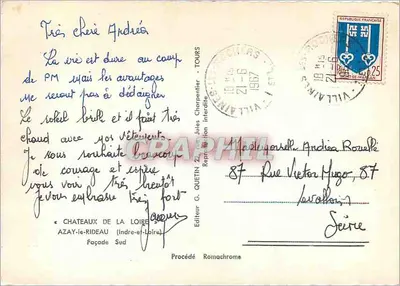 Très chère Andréa
La vie est dure au camp
de PM mais les avantages
ne seront pas à dédaigner
Le soleil brille et il fait très
chaud avec nos vêtements.
Je vous souhaite beaucoup
de courage et espère
vous voir très bientôt
Je vous embrasse très fort
Jacques
« CHATEAUX DE LA LOIRE »
AZAY-le-RIDEAU (Indre-et-Loire)
Façade Sud
Editeur G. QUETIN Jules Charpentier - TOURS
Reproduction interdite
Procédé Ramachrome
18 H 15
21-6
1967
18 H 15
21-6
REPUBLIQUE FRANÇAISE
0,25
Mademoiselle Andréa
87 Rue Victor Hugo, 87
Levallois
Seine
CPAPHIL